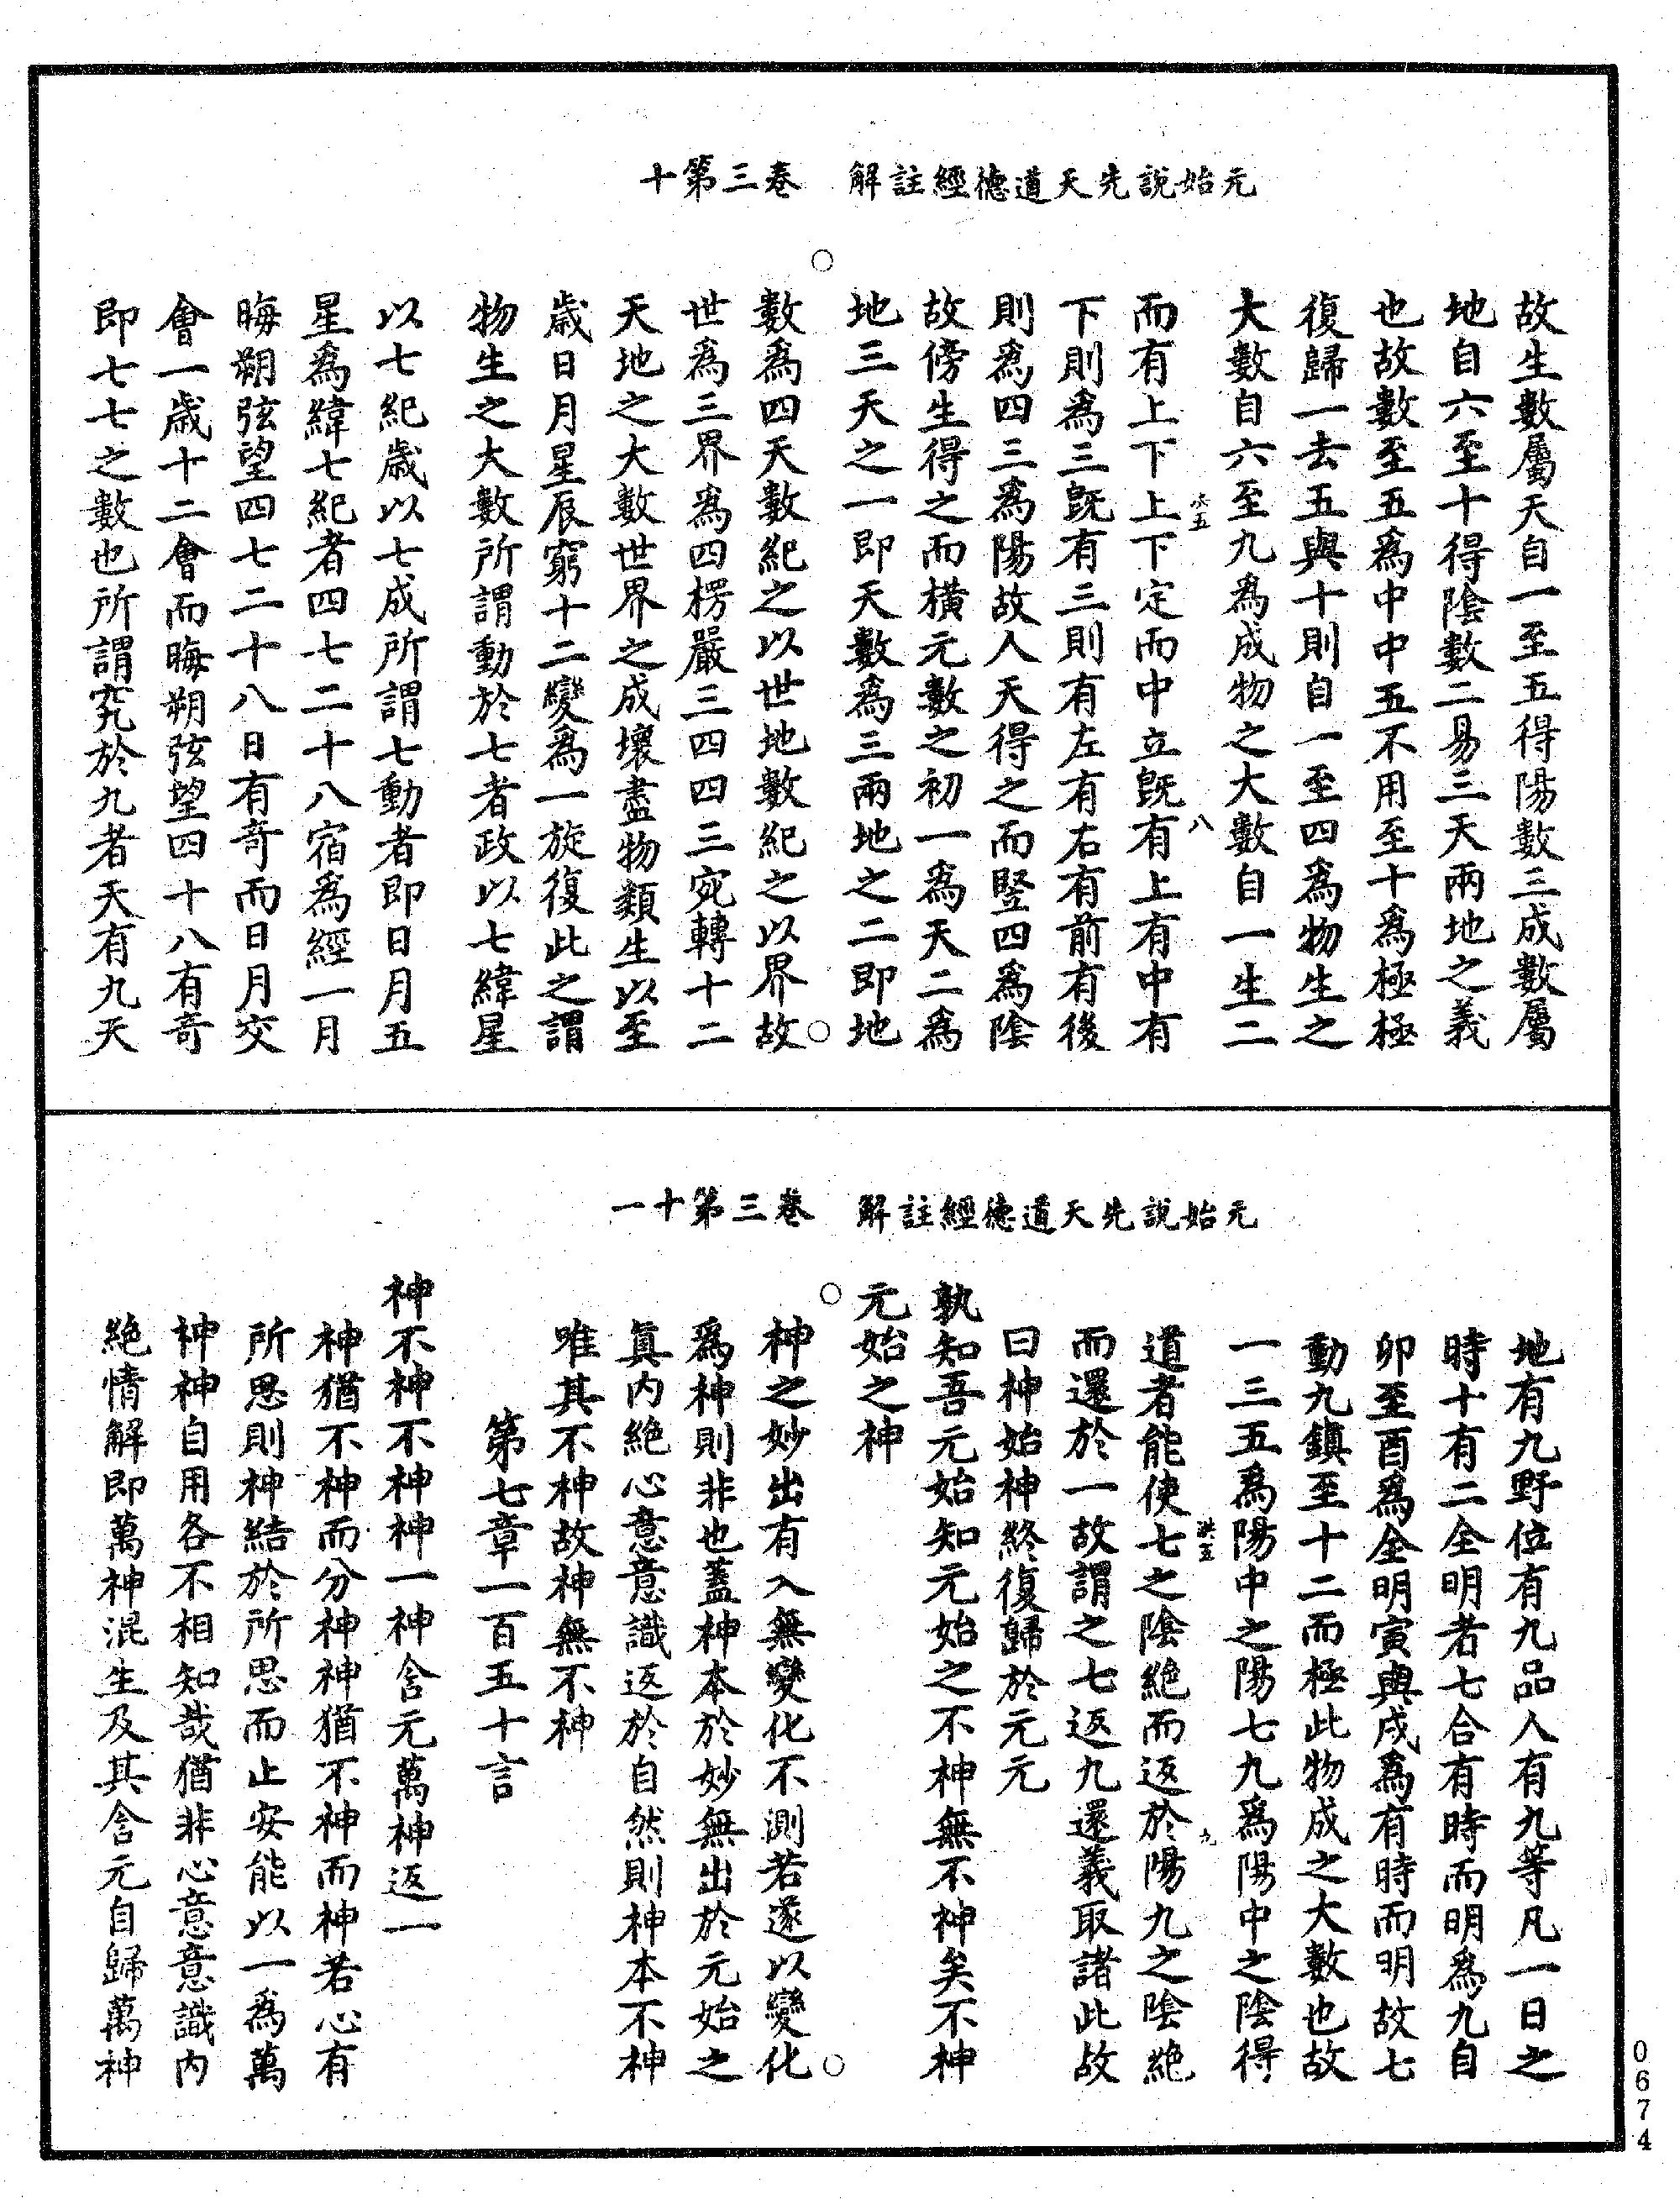 元始說先天道德經註解　卷三第十
故生數屬天自一至五得陽數三成數屬
地自六至十得陰數二易三天兩地之義
也故數至五爲中中五不用至十爲極極
復歸一去五與十則自一至四爲物生之
大數自六至九爲成物之大數自一生二
而有上下上下定而中立旣有上有中有
下則爲三旣有三則有左有右有前有後
則爲四三爲陽故人天得之而竪四爲陰
故傍生得之而橫元數之初一爲天二爲
地三天之一即天數爲三兩地之二即地
數爲四天數紀之以世地數紀之以界故
世爲三界爲四楞嚴三四四三宛轉十二
天地之大數世界之成壞盡物類生以至
歲日月星辰窮十二變爲一旋復此之謂
物生之大數所謂動於七者政以七緯星
以七紀歲以七成所謂七動者即日月五
星爲緯七紀者四七二十八宿爲經一月
晦朔弦望四七二十八日有奇而日月交
會一歲十二會而晦朔弦望四十八有奇
即七七之數也所謂究於九者天有九天
元始說先天道德經註解　卷三第十一
地有九野位有九品人有九等凡一日之
時十有二全明者七合有時而明爲九自
卯至酉爲全明寅與戌爲有時而明故七
動九鎮至十二而極此物成之大數也故
一三五爲陽中之陽七九爲陽中之陰得
道者能使七之陰絕而返於陽九之陰絕
而還於一故謂之七返九還義取諸此故
曰神始神終復歸於元元
孰知吾元始知元始之不神無不神矣不神
元始之神
神之妙出有入無變化不測若遂以變化
爲神則非也蓋神本於妙無出於元始之
眞內絕心意意識返於自然則神本不神
唯其不神故神無不神
第七章一百五十言
神不神不神神一神含元萬神返一
神猶不神而分神神猶不神而神若心有
所思則神結於所思而止安能以一爲萬
神神自用各不相知哉猶非心意意識內
絕情解即萬神混生及其含元自歸萬神
洪五
八
九
0674